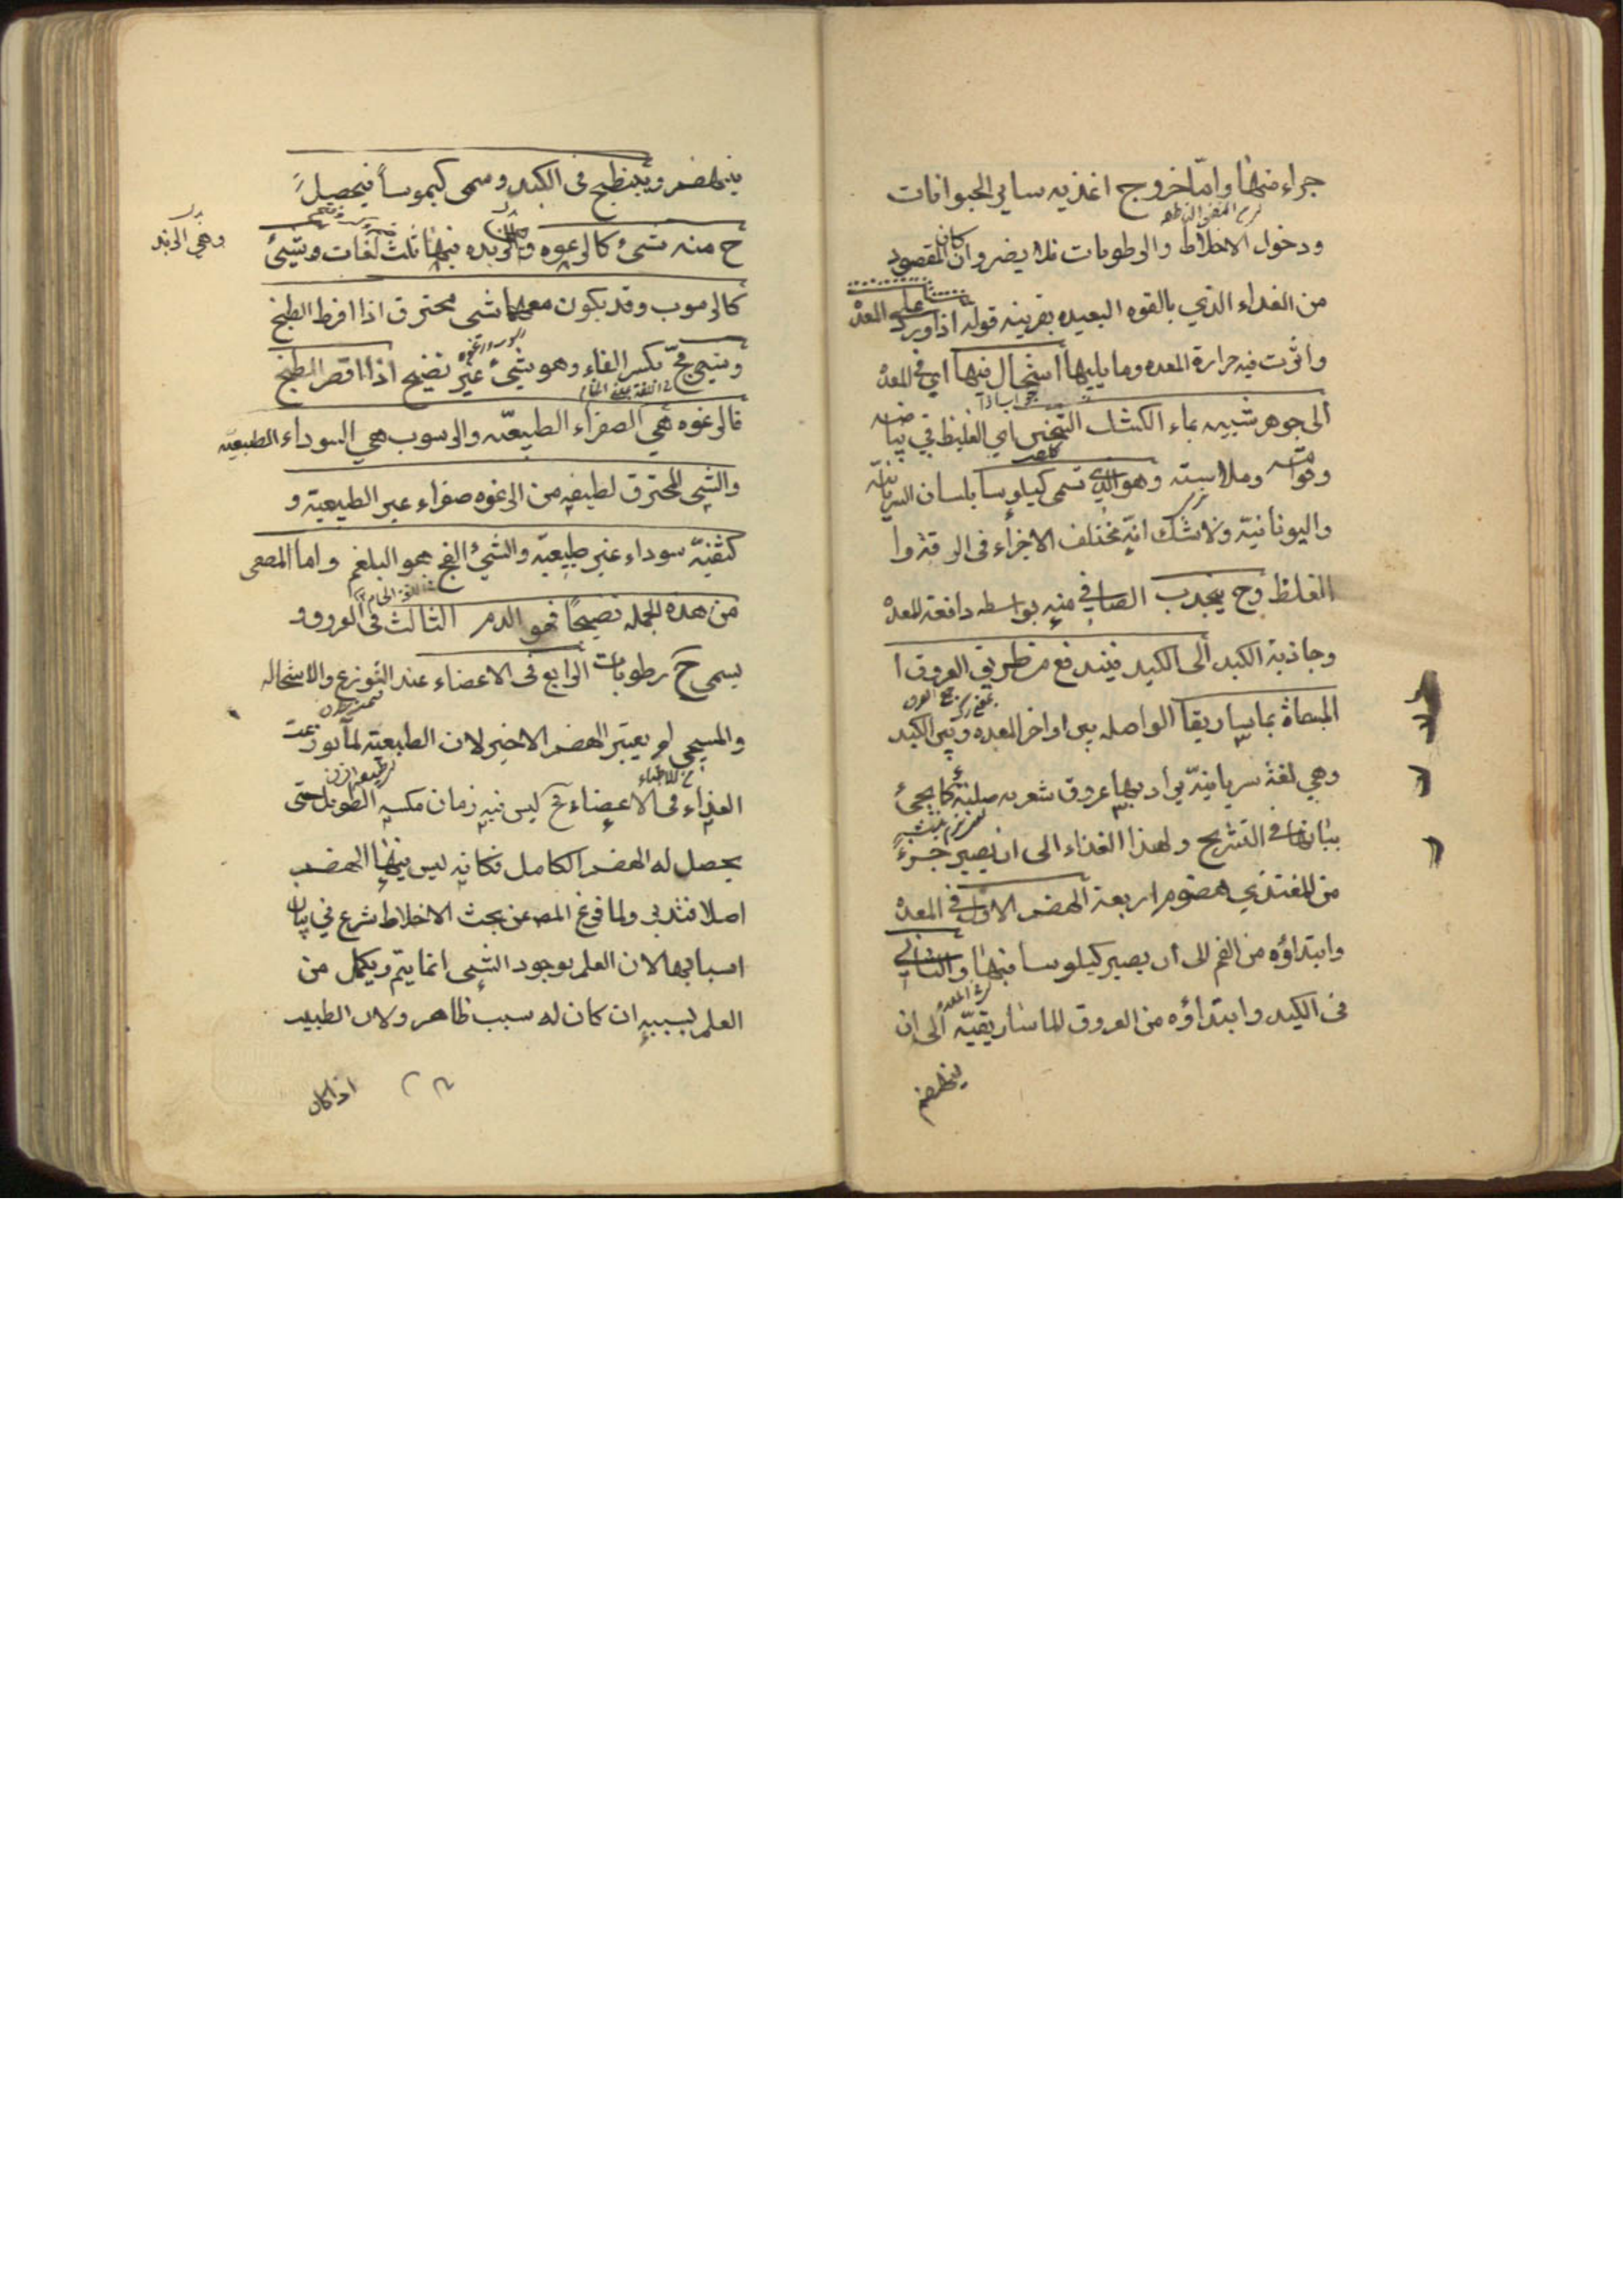 جزاء منها واما خروج اغذيه ساير الحيوانات
ودخول الاخلاط والرطوبات فلا يضر وان كان المقصود
من الغداء الذي بالقوه البعيده بقرينه قوله اذا ورد على المعدة
واثرت فيه حرارة المعده وما يليها استحال فيها اي في المعدة
الى جوهر شبيه بماء الكشك الثخين اي الغليظ في بياضه
وقوامه وملاسته وهو الذي تسمى كيلوسا بلسان السريانية
واليونانية ولا شك انه مختلف الاجزاء في الرقة وا
الغلظ وح ينجذب الصافي منه بواسطه دافعة المعدة
وجاذبة الكبد الى الكبد فيندفع من طريق العروق ا
المسماة بماساريقا الواصله بين اواخر المعده وبين الكبد
وهي لغة سريانية يراد بها عروق شعريه صلبة كما يجئ
بيانها في التشريح ولهذا الغذاء الى ان يصير جزء
من المغتذي هضوم اربعة الهضم الاول في المعدة
وابتداؤه من الفم الى ان يصير كيلوسا فيها والثاني
في الكبد وابتداؤه من العروق الماساريقيّه الى ان
ينهضم
ينهضم وينطبخ في الكبد ويسمى كيموسا فيحصل
ح منه شئ كالرغوه والزبده فيها ثلث لغات وشئ
وهي الزبد
كالرسوب وقد يكون معهما شي محترق اذا افرط الطبخ
وشي فجّ بكسر الفاء وهو شئ غير نضيج اذا قصر الطبخ
فالرغوه هي الصفراء الطبيعيّه والرسوب هي السوداء الطبيعيّه
والشي المحترق لطيفه من الرغوه صفراء غير الطبيعية و
كثيفه سوداء غير طبيعيّه والشئ الفج هو البلغم واما المصفى
من هذه الجمله نضيجا فهو الدم الثالث في العروق و
يسمى ح رطوبات الرابع في الاعضاء عند التوزع والاستحاله
والمسيحي لم يعتبر الهضم الاخير لان الطبيعة لما توزعت
الغذاء في الاعضاء ليس فيه زمان مكثه الطويل حتى
يحصل له الهضم الكامل فكانه ليس فيها الهضم
اصلا فتدبر ولما فرغ المص عن بحث الاخلاط شرع في بيان
اسبابها لان العلم بوجود الشي انما يتم ويكمل من
العلم بسببه ان كان له سبب ظاهر ولان الطبيب
اذا كان